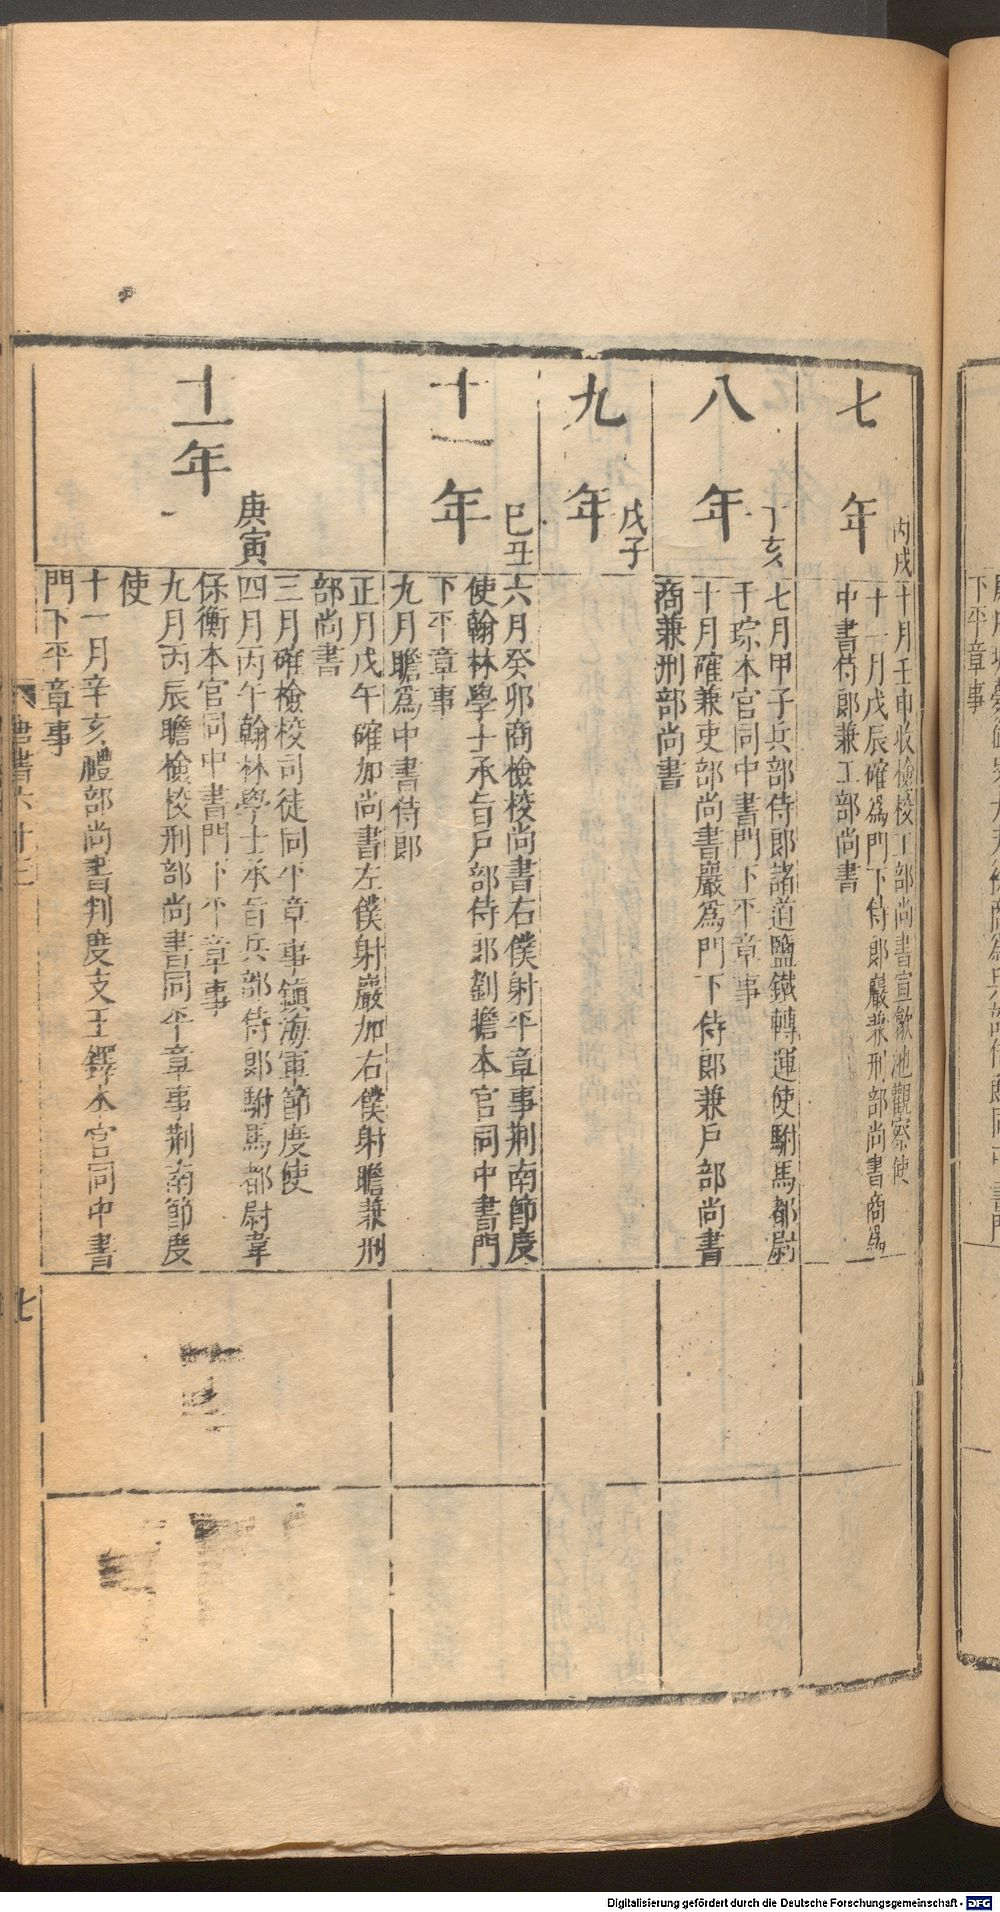 七年
丙戌
十月壬申收檢校工部尚書宣歙池觀察使
十一月戊辰確爲門下侍郎巖兼刑部尚書商爲
中書侍郎兼工部尚書
八年
丁亥
七月甲子兵部侍郎諸道鹽鐵轉運使駙馬都尉
于琮本官同中書門下平章事
十月確兼吏部尚書巖爲門下侍郎兼戶部尚書
商兼刑部尚書
九年
戊子
十一年
巳丑
六月癸卯商檢校尚書右僕射平章事荆南節度
使翰林學士承旨戶部侍郎劉瞻本官同中書門
下平章事
九月瞻爲中書侍郎
十一年
庚寅
正月戊午確加尚書左僕射巖加右僕射瞻兼刑
部尚書
三月確檢校司徒同平章事鎮海軍節度使
四月丙午翰林學士承旨兵部侍郎駙馬都尉韋
保衡本官同中書門下平章事
九月丙辰瞻檢校刑部尚書同平章事荆南節度
使
十一月辛亥禮部尚書判度支王鐸本官同中書
門下平章事
唐書六十三
七
下平章事
Digitalisierung gefördert durch die Deutsche Forschungsgemeinschaft - DFG